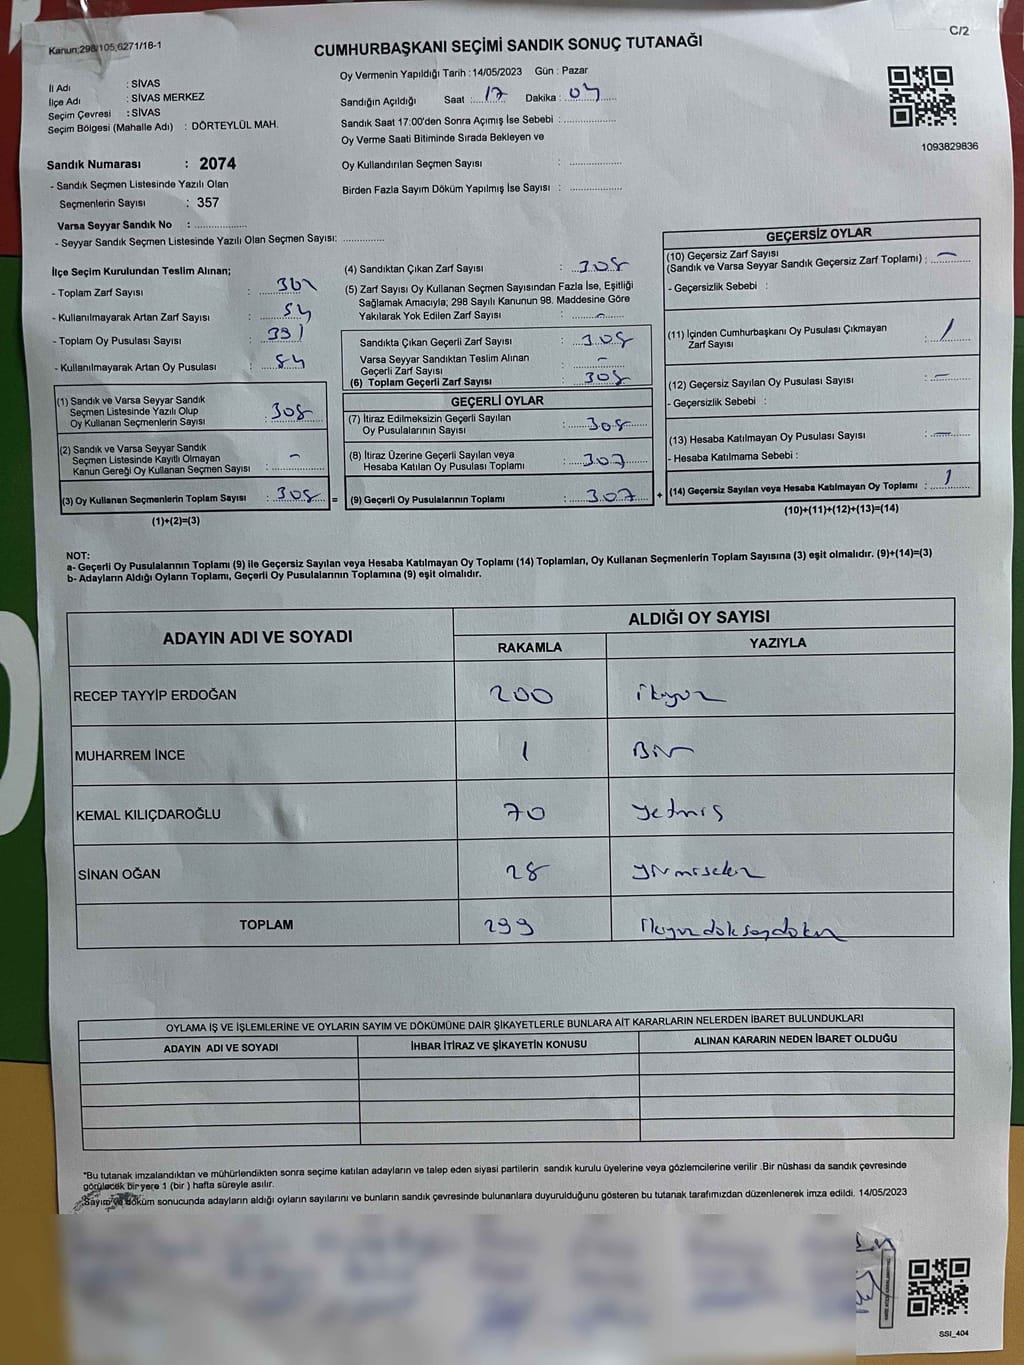 Kanun:298/105,6271/16-1
C/2
CUMHURBAŞKANI SEÇİMİ SANDIK SONUÇ TUTANAĞI
İl Adı : SİVAS
İlçe Adı : SİVAS MERKEZ
Seçim Çevresi : SİVAS
Seçim Bölgesi (Mahalle Adı) : DÖRTEYLÜL MAH.
Oy Vermenin Yapıldığı Tarih : 14/05/2023 Gün : Pazar
Sandığın Açıldığı Saat : 17 Dakika : 04
Sandık Saat 17:00'den Sonra Açımış İse Sebebi :
Oy Verme Saati Bitiminde Sırada Bekleyen ve
Oy Kullandırılan Seçmen Sayısı :
Birden Fazla Sayım Döküm Yapılmış İse Sayısı :
1093829836
Sandık Numarası : 2074
- Sandık Seçmen Listesinde Yazılı Olan
Seçmenlerin Sayısı : 357
Varsa Seyyar Sandık No :
- Seyyar Sandık Seçmen Listesinde Yazılı Olan Seçmen Sayısı:
İlçe Seçim Kurulundan Teslim Alınan;
- Toplam Zarf Sayısı :
- Kullanılmayarak Artan Zarf Sayısı : 54
- Toplam Oy Pusulası Sayısı : 391
- Kullanılmayarak Artan Oy Pusulası : 84
(1) Sandık ve Varsa Seyyar Sandık
Seçmen Listesinde Yazılı Olup
Oy Kullanan Seçmenlerin Sayısı : 308
(2) Sandık ve Varsa Seyyar Sandık
Seçmen Listesinde Kayıtlı Olmayan
Kanun Gereği Oy Kullanan Seçmen Sayısı : -
(3) Oy Kullanan Seçmenlerin Toplam Sayısı : 308 =
(1)+(2)=(3)
(4) Sandıktan Çıkan Zarf Sayısı : 308
(5) Zarf Sayısı Oy Kullanan Seçmen Sayısından Fazla İse, Eşitliği
Sağlamak Amacıyla; 298 Sayılı Kanunun 98. Maddesine Göre
Yakılarak Yok Edilen Zarf Sayısı : -
Sandıkta Çıkan Geçerli Zarf Sayısı : 308
Varsa Seyyar Sandıktan Teslim Alınan
Geçerli Zarf Sayısı : -
(6) Toplam Geçerli Zarf Sayısı : 308
GEÇERLİ OYLAR
(7) İtiraz Edilmeksizin Geçerli Sayılan
Oy Pusulalarının Sayısı : 308
(8) İtiraz Üzerine Geçerli Sayılan veya
Hesaba Katılan Oy Pusulası Toplamı : 307
(9) Geçerli Oy Pusulalarının Toplamı : 307 +
GEÇERSİZ OYLAR
(10) Geçersiz Zarf Sayısı
(Sandık ve Varsa Seyyar Sandık Geçersiz Zarf Toplamı) : -
- Geçersizlik Sebebi :
(11) İçinden Cumhurbaşkanı Oy Pusulası Çıkmayan
Zarf Sayısı : 1
(12) Geçersiz Sayılan Oy Pusulası Sayısı : -
- Geçersizlik Sebebi :
(13) Hesaba Katılmayan Oy Pusulası Sayısı : -
- Hesaba Katılmama Sebebi :
(14) Geçersiz Sayılan veya Hesaba Katılmayan Oy Toplamı : 1
(10)+(11)+(12)+(13)=(14)
NOT:
a- Geçerli Oy Pusulalarının Toplamı (9) ile Geçersiz Sayılan veya Hesaba Katılmayan Oy Toplamı (14) Toplamları, Oy Kullanan Seçmenlerin Toplam Sayısına (3) eşit olmalıdır. (9)+(14)=(3)
b- Adayların Aldığı Oyların Toplamı, Geçerli Oy Pusulalarının Toplamına (9) eşit olmalıdır.
ADAYIN ADI VE SOYADI
ALDIĞI OY SAYISI
RAKAMLA YAZIYLA
RECEP TAYYİP ERDOĞAN 200 ikiyüz
MUHARREM İNCE 1 Bir
KEMAL KILIÇDAROĞLU 70 yetmiş
SİNAN OĞAN 28 yirmisekiz
TOPLAM 299 ikiyüzdoksandokuz
OYLAMA İŞ VE İŞLEMLERİNE VE OYLARIN SAYIM VE DÖKÜMÜNE DAİR ŞİKAYETLERLE BUNLARA AİT KARARLARIN NELERDEN İBARET BULUNDUKLARI
ADAYIN ADI VE SOYADI İHBAR İTİRAZ VE ŞİKAYETİN KONUSU ALINAN KARARIN NEDEN İBARET OLDUĞU
*Bu tutanak imzalandıktan ve mühürlendikten sonra seçime katılan adayların ve talep eden siyasi partilerin sandık kurulu üyelerine veya gözlemcilerine verilir .Bir nüshası da sandık çevresinde
görülecek bir yere 1 (bir ) hafta süreyle asılır.
Sayım ve döküm sonucunda adayların aldığı oyların sayılarını ve bunların sandık çevresinde bulunanlara duyurulduğunu gösteren bu tutanak tarafımızdan düzenlenerek imza edildi. 14/05/2023
SSI_404